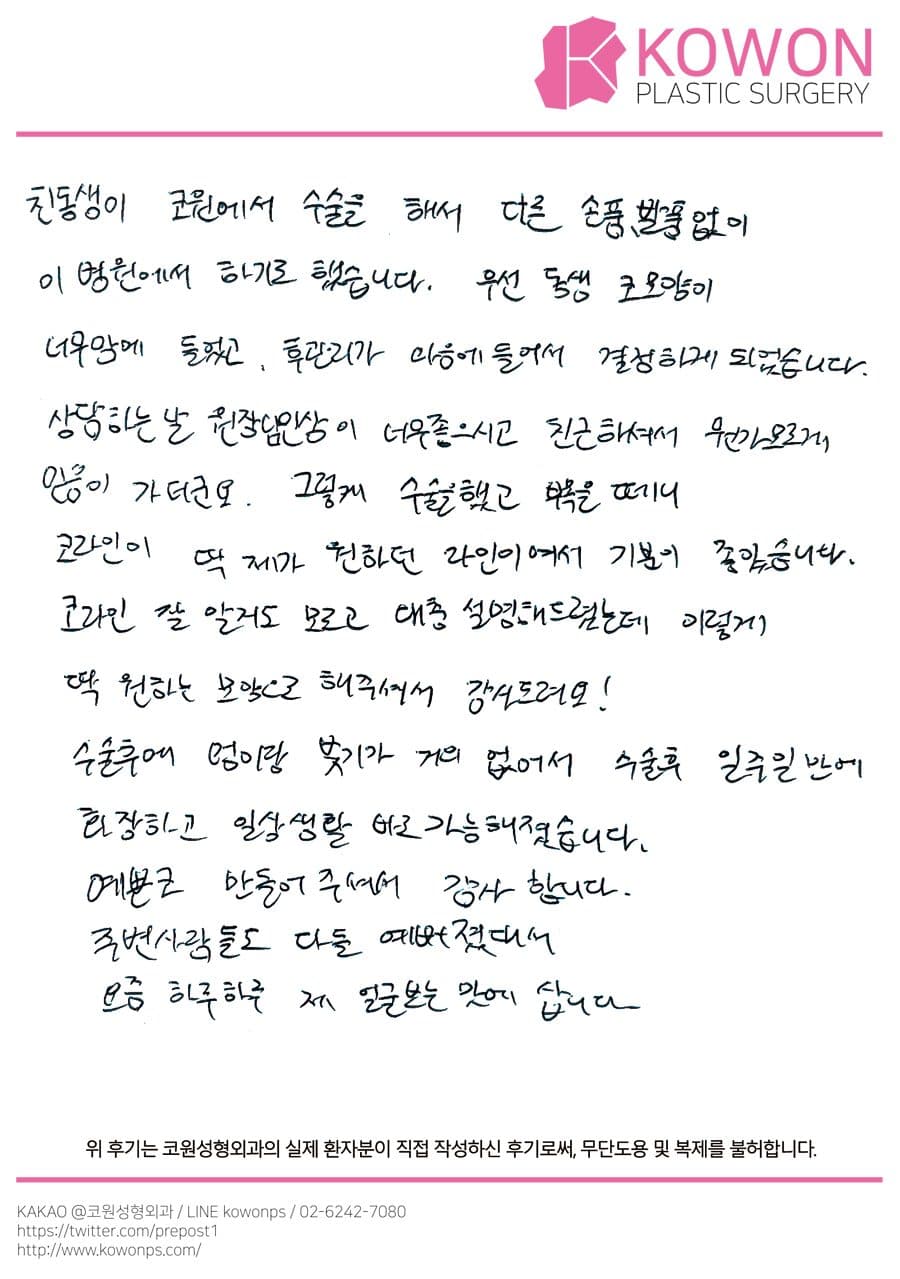 KOWON
PLASTIC SURGERY
친동생이 코원에서 수술을 해서 다른 손품, 발품 없이
이 병원에서 하기로 했습니다. 우선 동생 코모양이
너무맘에 들었고, 후관리가 마음에 들어서 결정하게 되었습니다.
상담하는 날 원장님인상이 너무좋으시고 친근하셔서 뭔가모르게,
믿음이 가더군요. 그렇게 수술을했고 부목을 떼니
코라인이 딱 제가 원하던 라인이여서 기분이 좋았습니다.
코라인 잘 알지도 모르고 대충 설명해드렸는데 이렇게
딱 원하는 모양으로 해주셔서 감사드려요!
수술후에 멍이랑 붓기가 거의 없어서 수술후 일주일 반에
화장하고 일상생활 바로가능해졌습니다.
예쁜코 만들어 주셔서 감사 합니다.
주변사람들도 다들 예뻐졌대서
요즘 하루하루 제 얼굴보는 맛에 삽니다
위 후기는 코원성형외과의 실제 환자분이 직접 작성하신 후기로써, 무단도용 및 복제를 불허합니다.
KAKAO @코원성형외과 / LINE kowonps / 02-6242-7080
https://twitter.com/prepost1
http://www.kowonps.com/